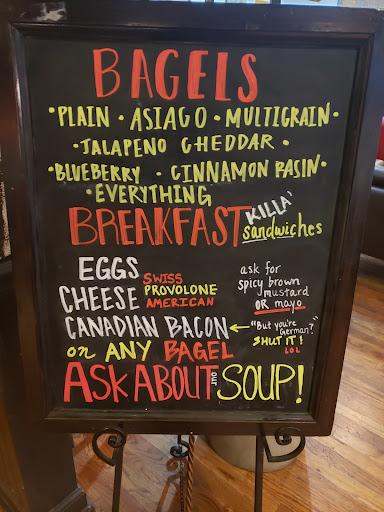 BAGELS
•PLAIN • ASIAGO • MULTIGRAIN•
•JALAPENO CHEDDAR •
•BLUEBERRY • CINNAMON RASIN•
•EVERYTHING
BREAKFAST KILLA' sandwiches
EGGS
CHEESE SWISS PROVOLONE AMERICAN
CANADIAN BACON
on ANY BAGEL
ask for
spicy brown
mustard
OR mayo.
← "But you're
German?"
SHUT IT!
LOL
ASK ABOUT our SOUP!